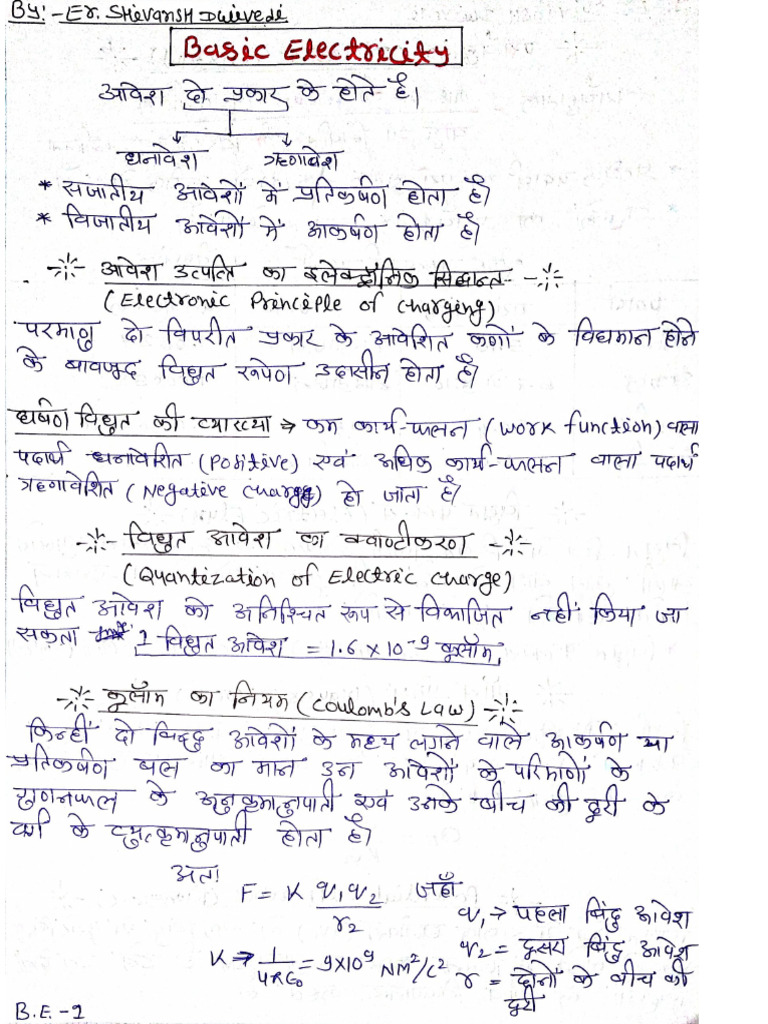 By:- Er. Shivansh Dwivedi
Basic Electricity
आवेश दो प्रकार के होते हैं।
धनावेश ऋणावेश
* सजातीय आवेशों में प्रतिकर्षण होता है।
* विजातीय आवेशों में आकर्षण होता है।
आवेश उत्पत्ति का इलेक्ट्रॉनिक सिद्धान्त-
(Electronic Principle of charging)
परमाणु दो विपरीत प्रकार के आवेशित कणों के विद्यमान होने
के बावजूद विद्युत रूपेण उदासीन होता है।
घर्षण विद्युत की व्याख्या → कम कार्य-फलन (work function) वाला
पदार्थ धनावेशित (Positive) एवं अधिक कार्य-फलन वाला पदार्थ
ऋणावेशित (Negative charge) हो जाता है।
विद्युत आवेश का क्वाण्टीकरण
(Quantization of Electric charge)
विद्युत आवेश को अनिश्चित रूप से विभाजित नहीं किया जा
सकता 1 विद्युत आवेश = 1.6 × 10⁻⁹ कूलॉम
कूलॉम का नियम (Coulomb's Law)
किन्हीं दो विद्युत आवेशों के मध्य लगने वाले आकर्षण या
प्रतिकर्षण बल का मान उन आवेशों के परिमाणों के
गुणनफल के अनुक्रमानुपाती एवं उनके बीच की दूरी के
वर्ग के व्युत्क्रमानुपाती होता है।
अतः
F = K q₁q₂/r₂ जहाँ
q₁ → पहला बिंदु आवेश
q₂ = दूसरा बिंदु आवेश
K → 1/4πε₀ = 9×10⁹ NM²/C² r = दोनों के बीच की
दूरी
B.E.-1